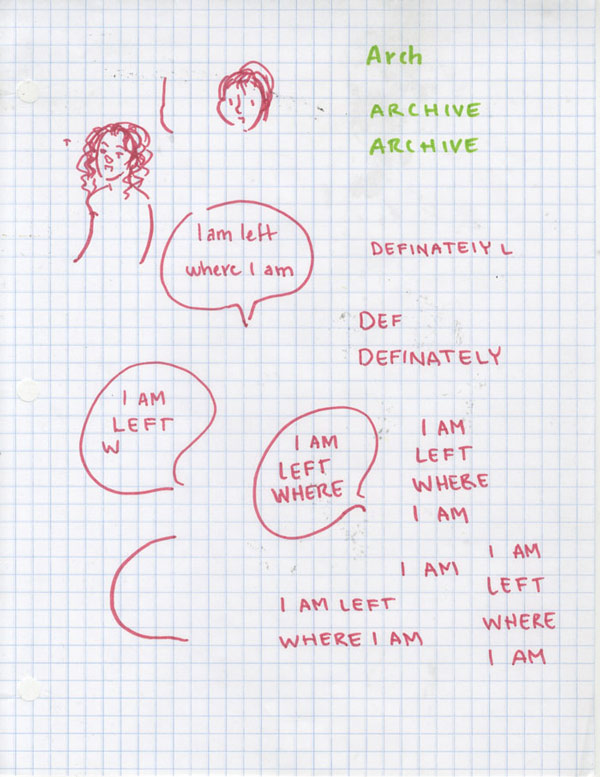 Arch
ARCHIVE
ARCHIVE
I am left
where I am
DEFINATElY L
DEF
DEFINATELY
I AM
LEFT
W
I AM
LEFT
WHERE
I AM
LEFT
WHERE
I AM
I AM
I AM LEFT
WHERE I AM
I AM
LEFT
WHERE
I AM